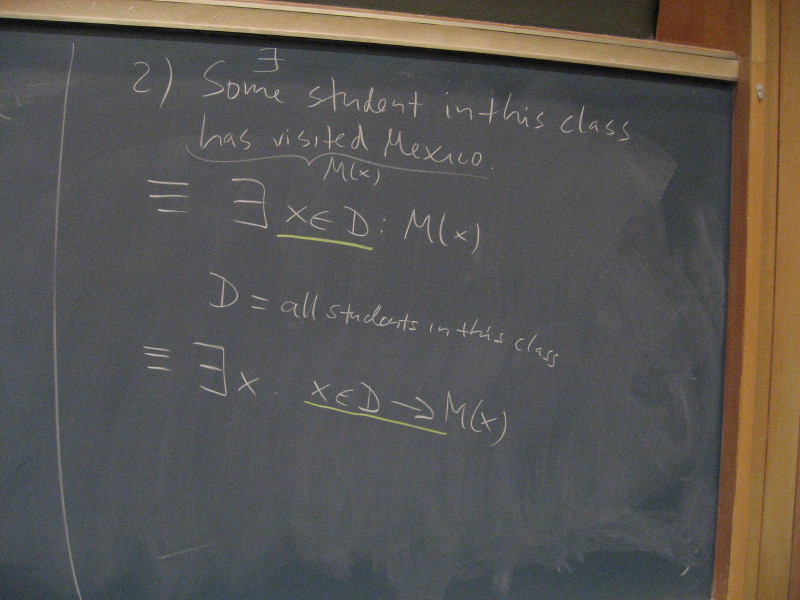 ∃
2) Some student in this class
has visited Mexico.
M(x)
≡ ∃ x ∈ D : M(x)
D = all students in this class
≡ ∃ x . x ∈ D → M(x)